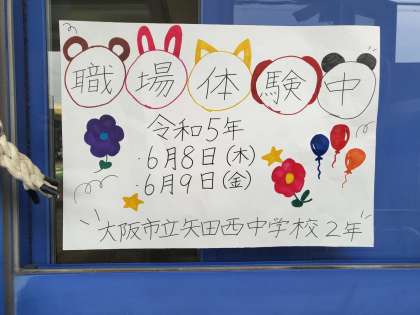 職場体験中
令和5年
・6月8日(木)
・6月9日(金)
大阪市立矢田西中学校2年